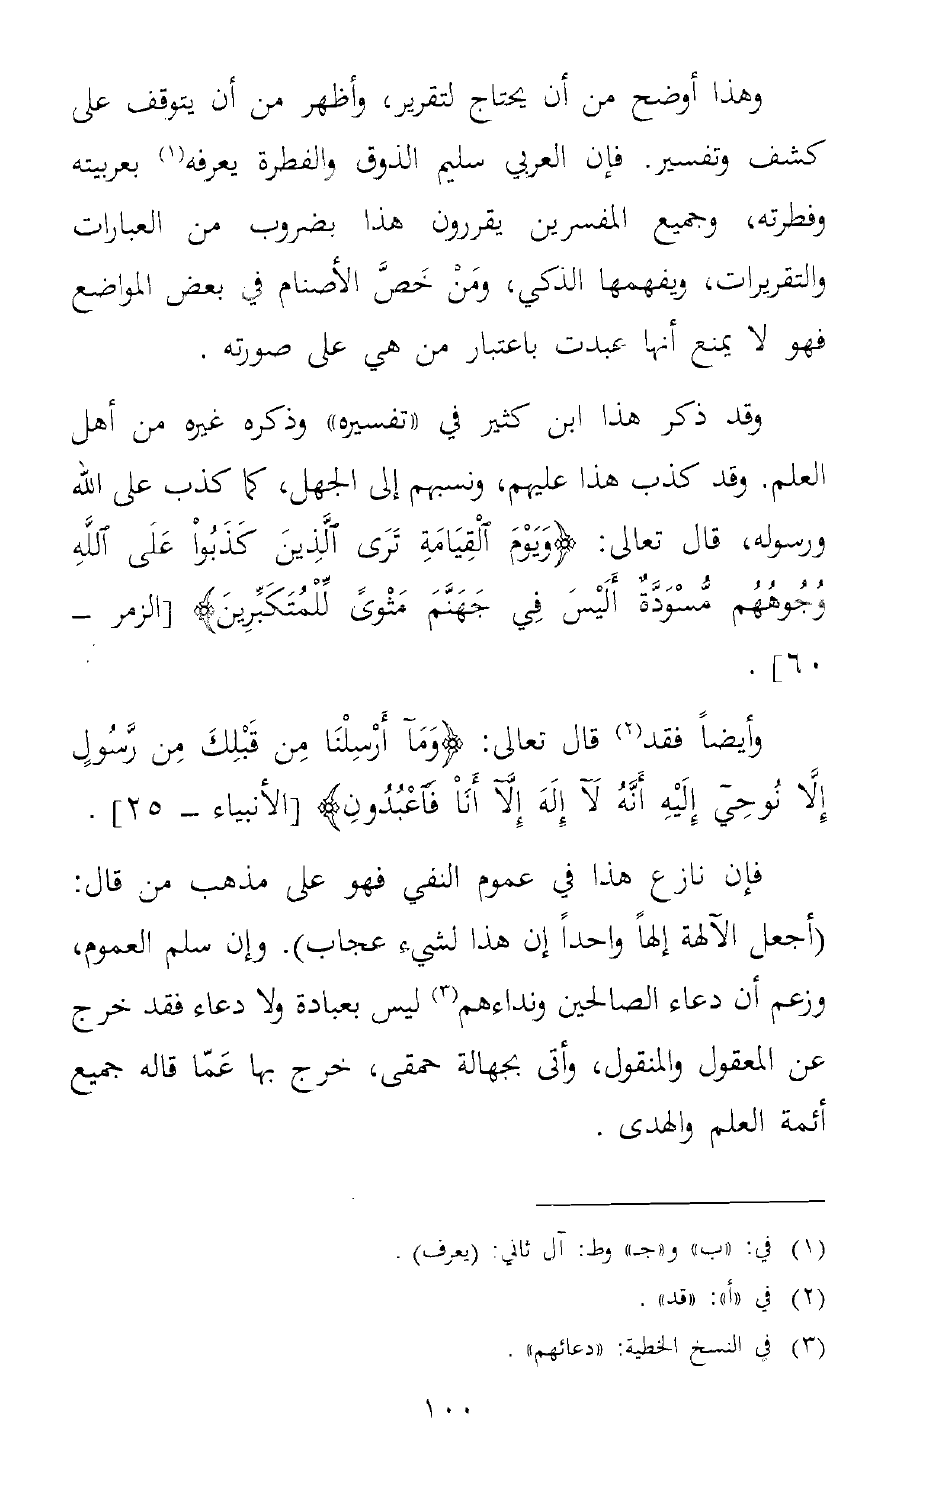 وهذا أوضح من أن يحتاج لتقرير، وأظهر من أن يتوقف على
كشف وتفسير. فإن العربي سليم الذوق والفطرة يعرفه(١) بعربيته
وفطرته، وجميع المفسرين يقررون هذا بضروب من العبارات
والتقريرات، ويفهمها الذكي، ومَنْ خَصَّ الأصنام في بعض المواضع
فهو لا يمنع أنها عبدت باعتبار من هي على صورته .
وقد ذكر هذا ابن كثير في «تفسيره» وذكره غيره من أهل
العلم. وقد كذب هذا عليهم، ونسبهم إلى الجهل، كما كذب على الله
ورسوله، قال تعالى: ﴿وَيَوْمَ ٱلْقِيَامَةِ تَرَى ٱلَّذِينَ كَذَبُواْ عَلَى ٱللَّهِ
وُجُوهُهُم مُّسْوَدَّةٌ أَلَيْسَ فِي جَهَنَّمَ مَثْوىً لِّلْمُتَكَبِّرِينَ﴾ [الزمر -
٦٠] .
وأيضاً فقد(٢) قال تعالى: ﴿وَمَآ أَرْسلْنَا مِن قَبْلِكَ مِن رَّسُولٍ
إِلَّا نُوحِيٓ إِلَيْهِ أَنَّهُ لَآ إِلَهَ إِلَّآ أَنَاْ فَٱعْبُدُونِ﴾ [الأنبياء - ٢٥] .
فإن نازع هذا في عموم النفي فهو على مذهب من قال:
(أجعل الآلهة إلهاً واحداً إن هذا لشيء عجاب). وإن سلم العموم،
وزعم أن دعاء الصالحين ونداءهم(٣) ليس بعبادة ولا دعاء فقد خرج
عن المعقول والمنقول، وأتى بجهالة حمقى، خرج بها عَمّا قاله جميع
أئمة العلم والهدى .
(١) في: «ب» و«جـ» وط: آل ثاني: (يعرف) .
(٢) في «أ»: «قد» .
(٣) في النسخ الخطية: «دعائهم» .
١٠٠